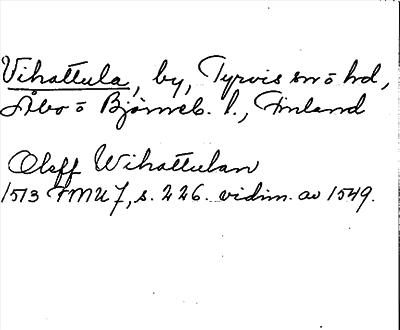 Vihattula, by, Tyrvis sn o hd,
Åbo o Björneb. l., Finland
Oleff Wihattulan
1513 FMU 7, s. 226. vidim. av 1549.